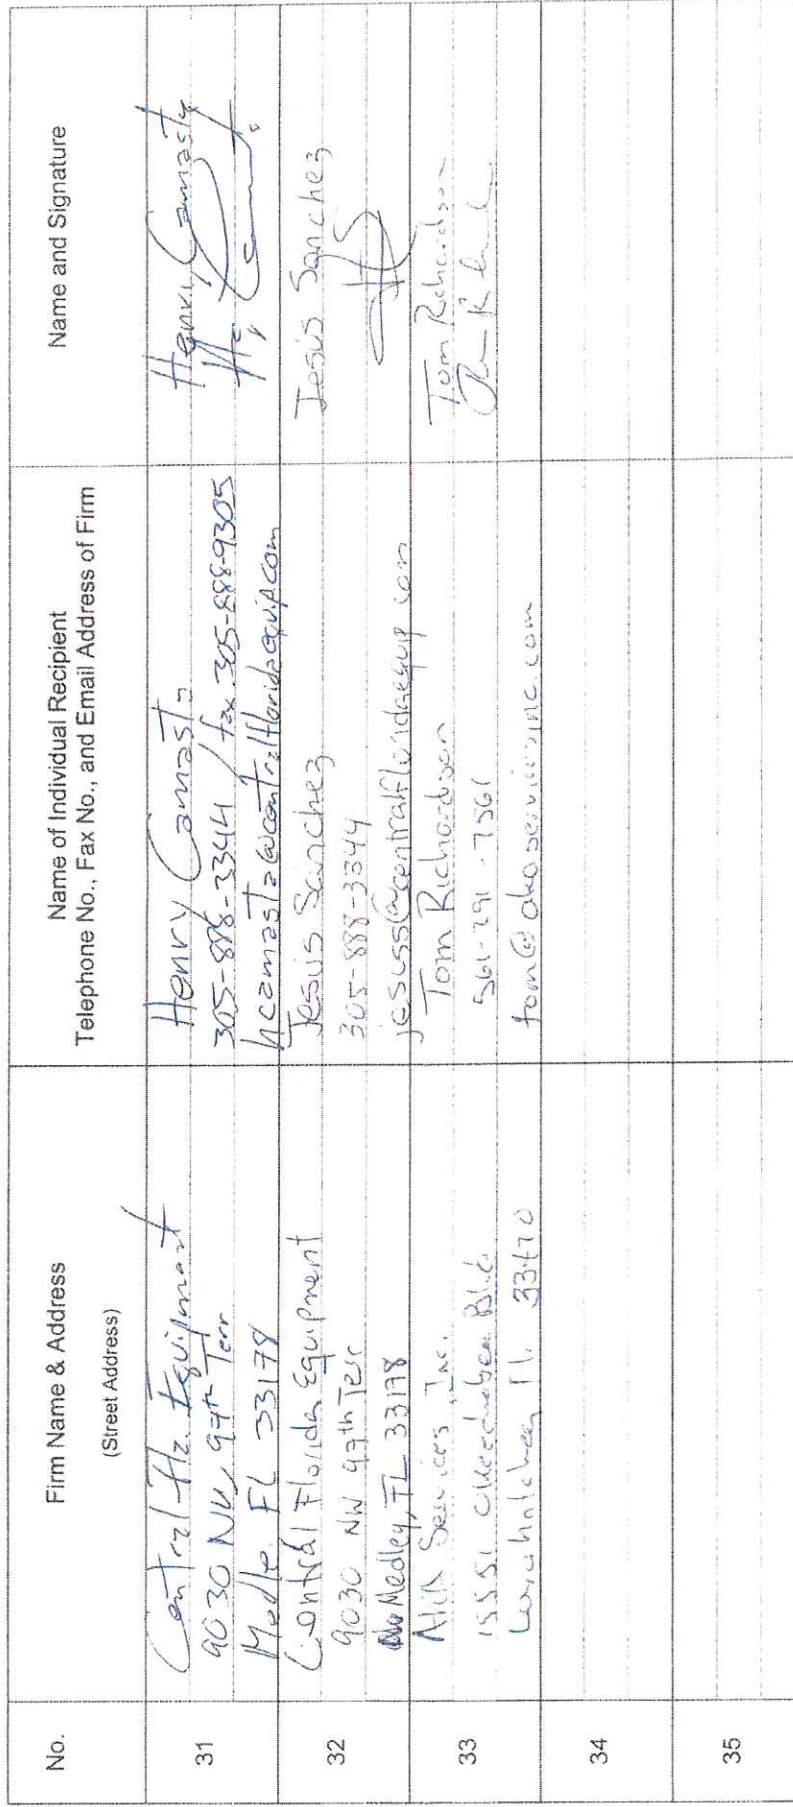 No.
Firm Name & Address
(Street Address)
Name of Individual Recipient
Telephone No., Fax No., and Email Address of Firm
Name and Signature
31
Central Fla. Equipment
9030 NW 97th Terr
FL 33178
Henry Camasta
305-888-3344 / fax 305-888-9305
hcamasta@centralfloridaequip.com
Henry Camasta
32
Central Florida Equipment
9030 NW 97th Terr
Medley, FL 33178
Jesus Sanchez
305-888-3344
jesuss@centralfloridaequip.com
Jesus Sanchez
33
Services, Inc.
15551 Okeechobee Blvd.
Fl. 33470
Tom Richardson
561-791-7561
Tom Richardson
34
35